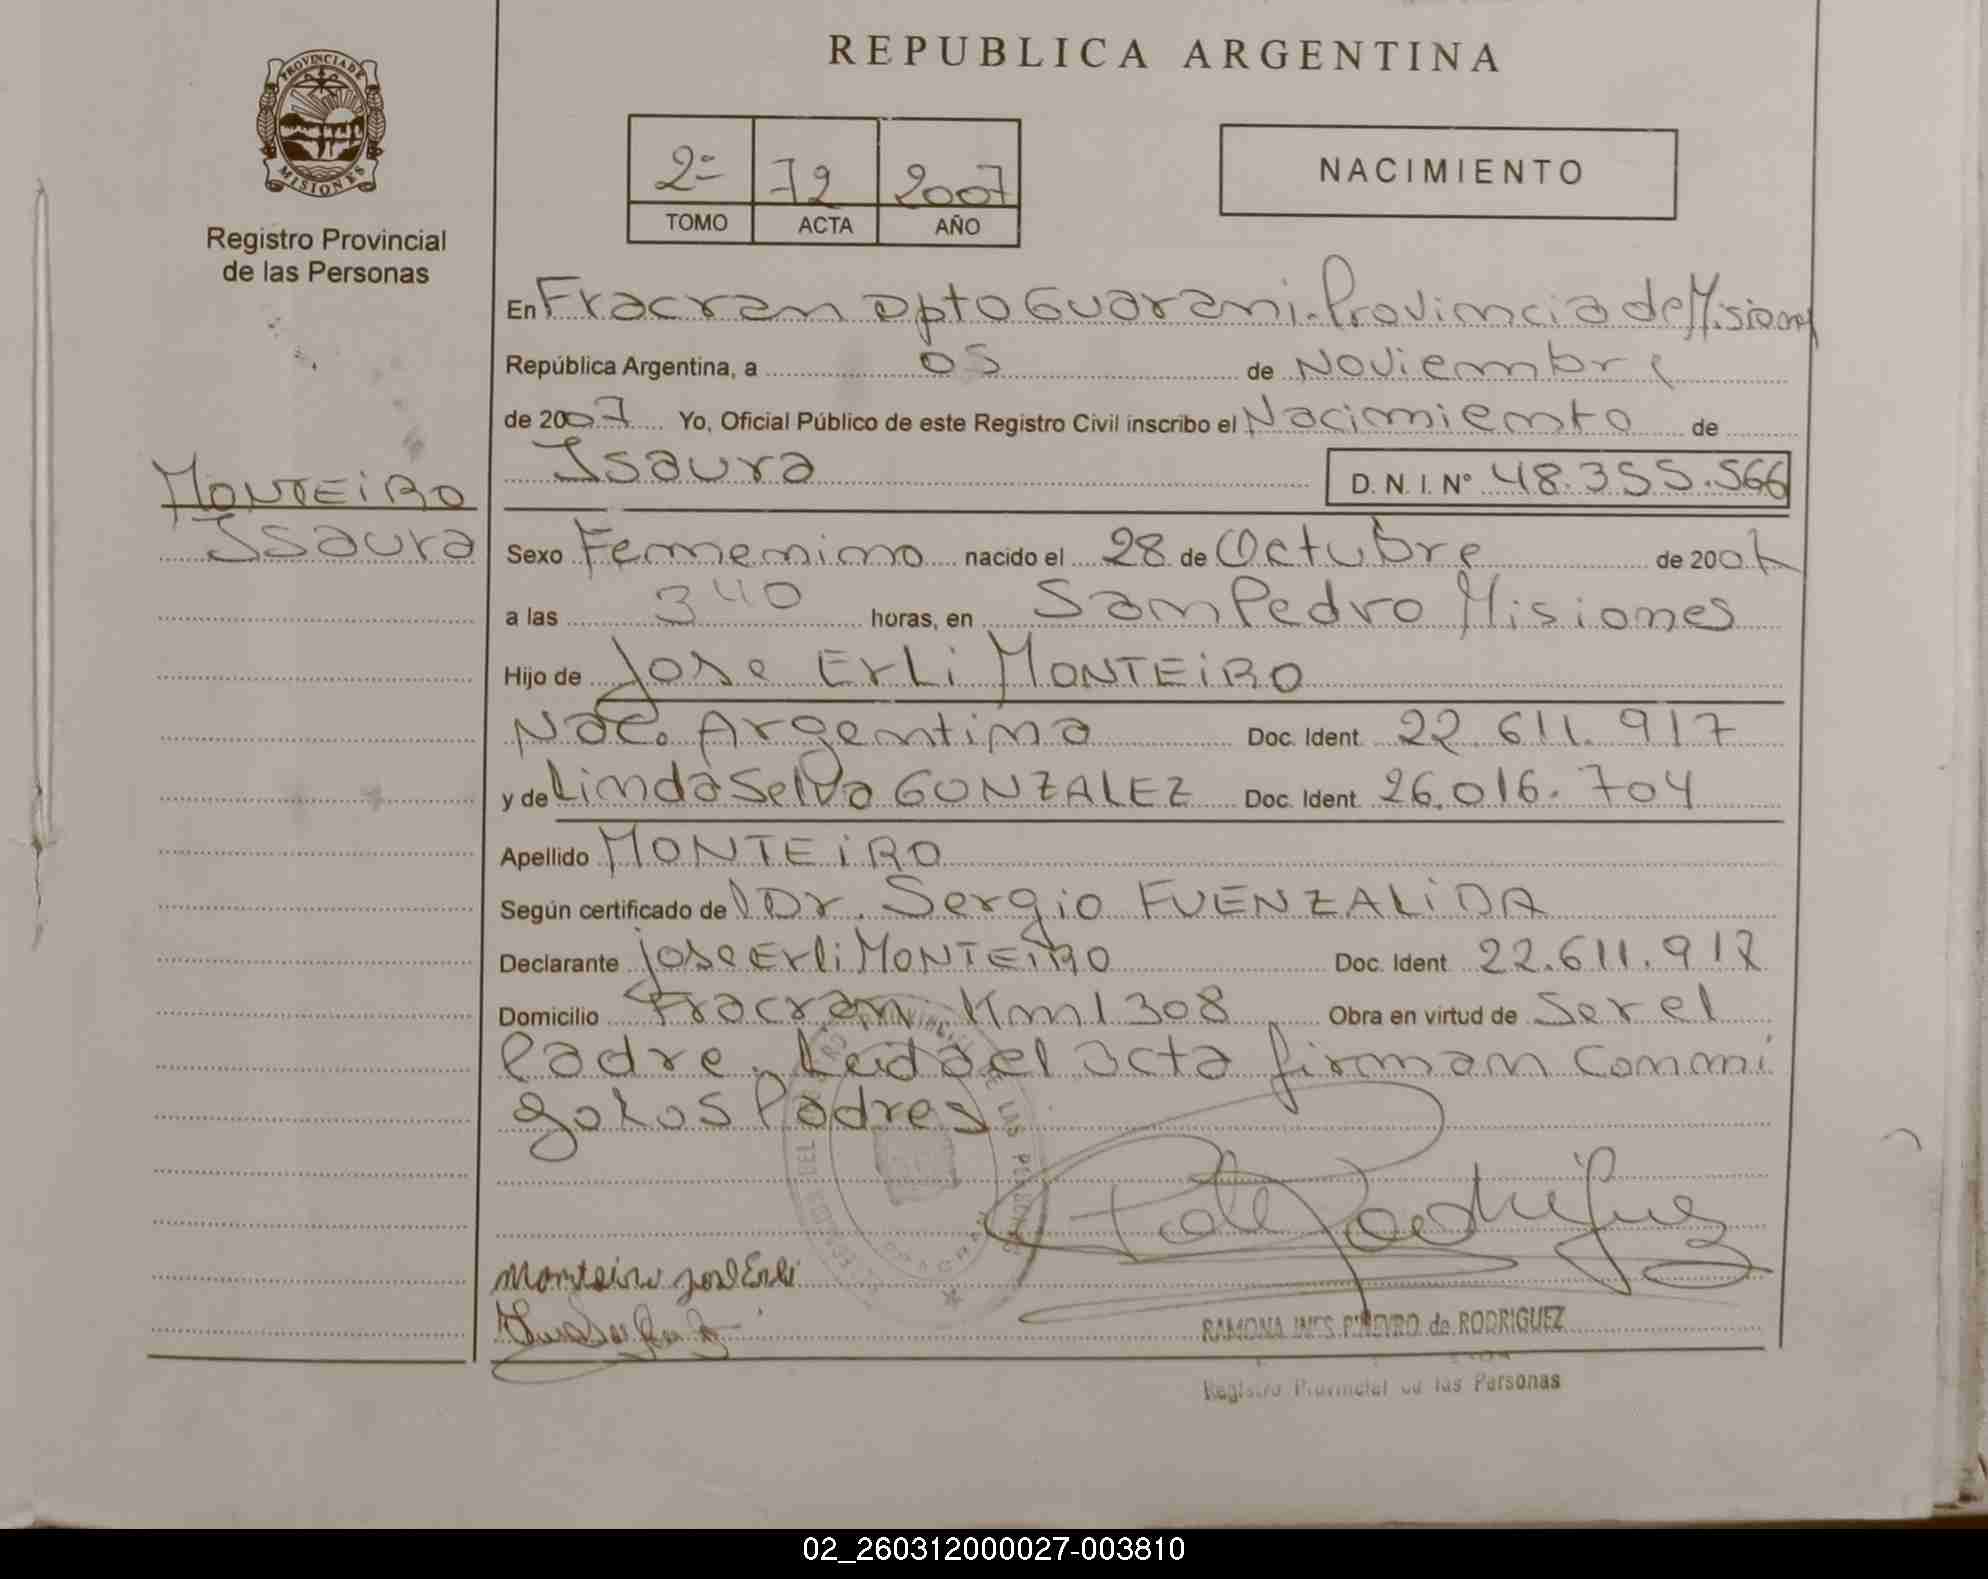 PROVINCIA DE
MISIONES
Registro Provincial
de las Personas
REPUBLICA ARGENTINA
2º 72 2007
TOMO ACTA AÑO
NACIMIENTO
En Fracran Dpto Guarani. Provincia de Misiones
República Argentina, a 05 de Noviembre
de 2007 Yo, Oficial Público de este Registro Civil inscribo el Nacimiento de
Isaura D. N. I. Nº 48.355.566
MONTEIRO
Isaura
Sexo Femenino nacido el 28 de Octubre de 2007
a las 340 horas, en San Pedro Misiones
Hijo de Jose Erli MONTEIRO
Nac. Argentina Doc. Ident. 22.611.917
y de Linda Selva GONZALEZ Doc. Ident. 26.016.704
Apellido MONTEIRO
Según certificado de l Dr. Sergio FUENZALIDA
Declarante Jose Erli MONTEIRO Doc. Ident. 22.611.917
Domicilio Fracran Km 1308 Obra en virtud de Ser el
Padre. Leida el acta firman conmi
go los Padres
Monteiro José Erli
RAMONA INES PIÑEYRO de RODRIGUEZ
Registro Provincial de las Personas
02_260312000027-003810